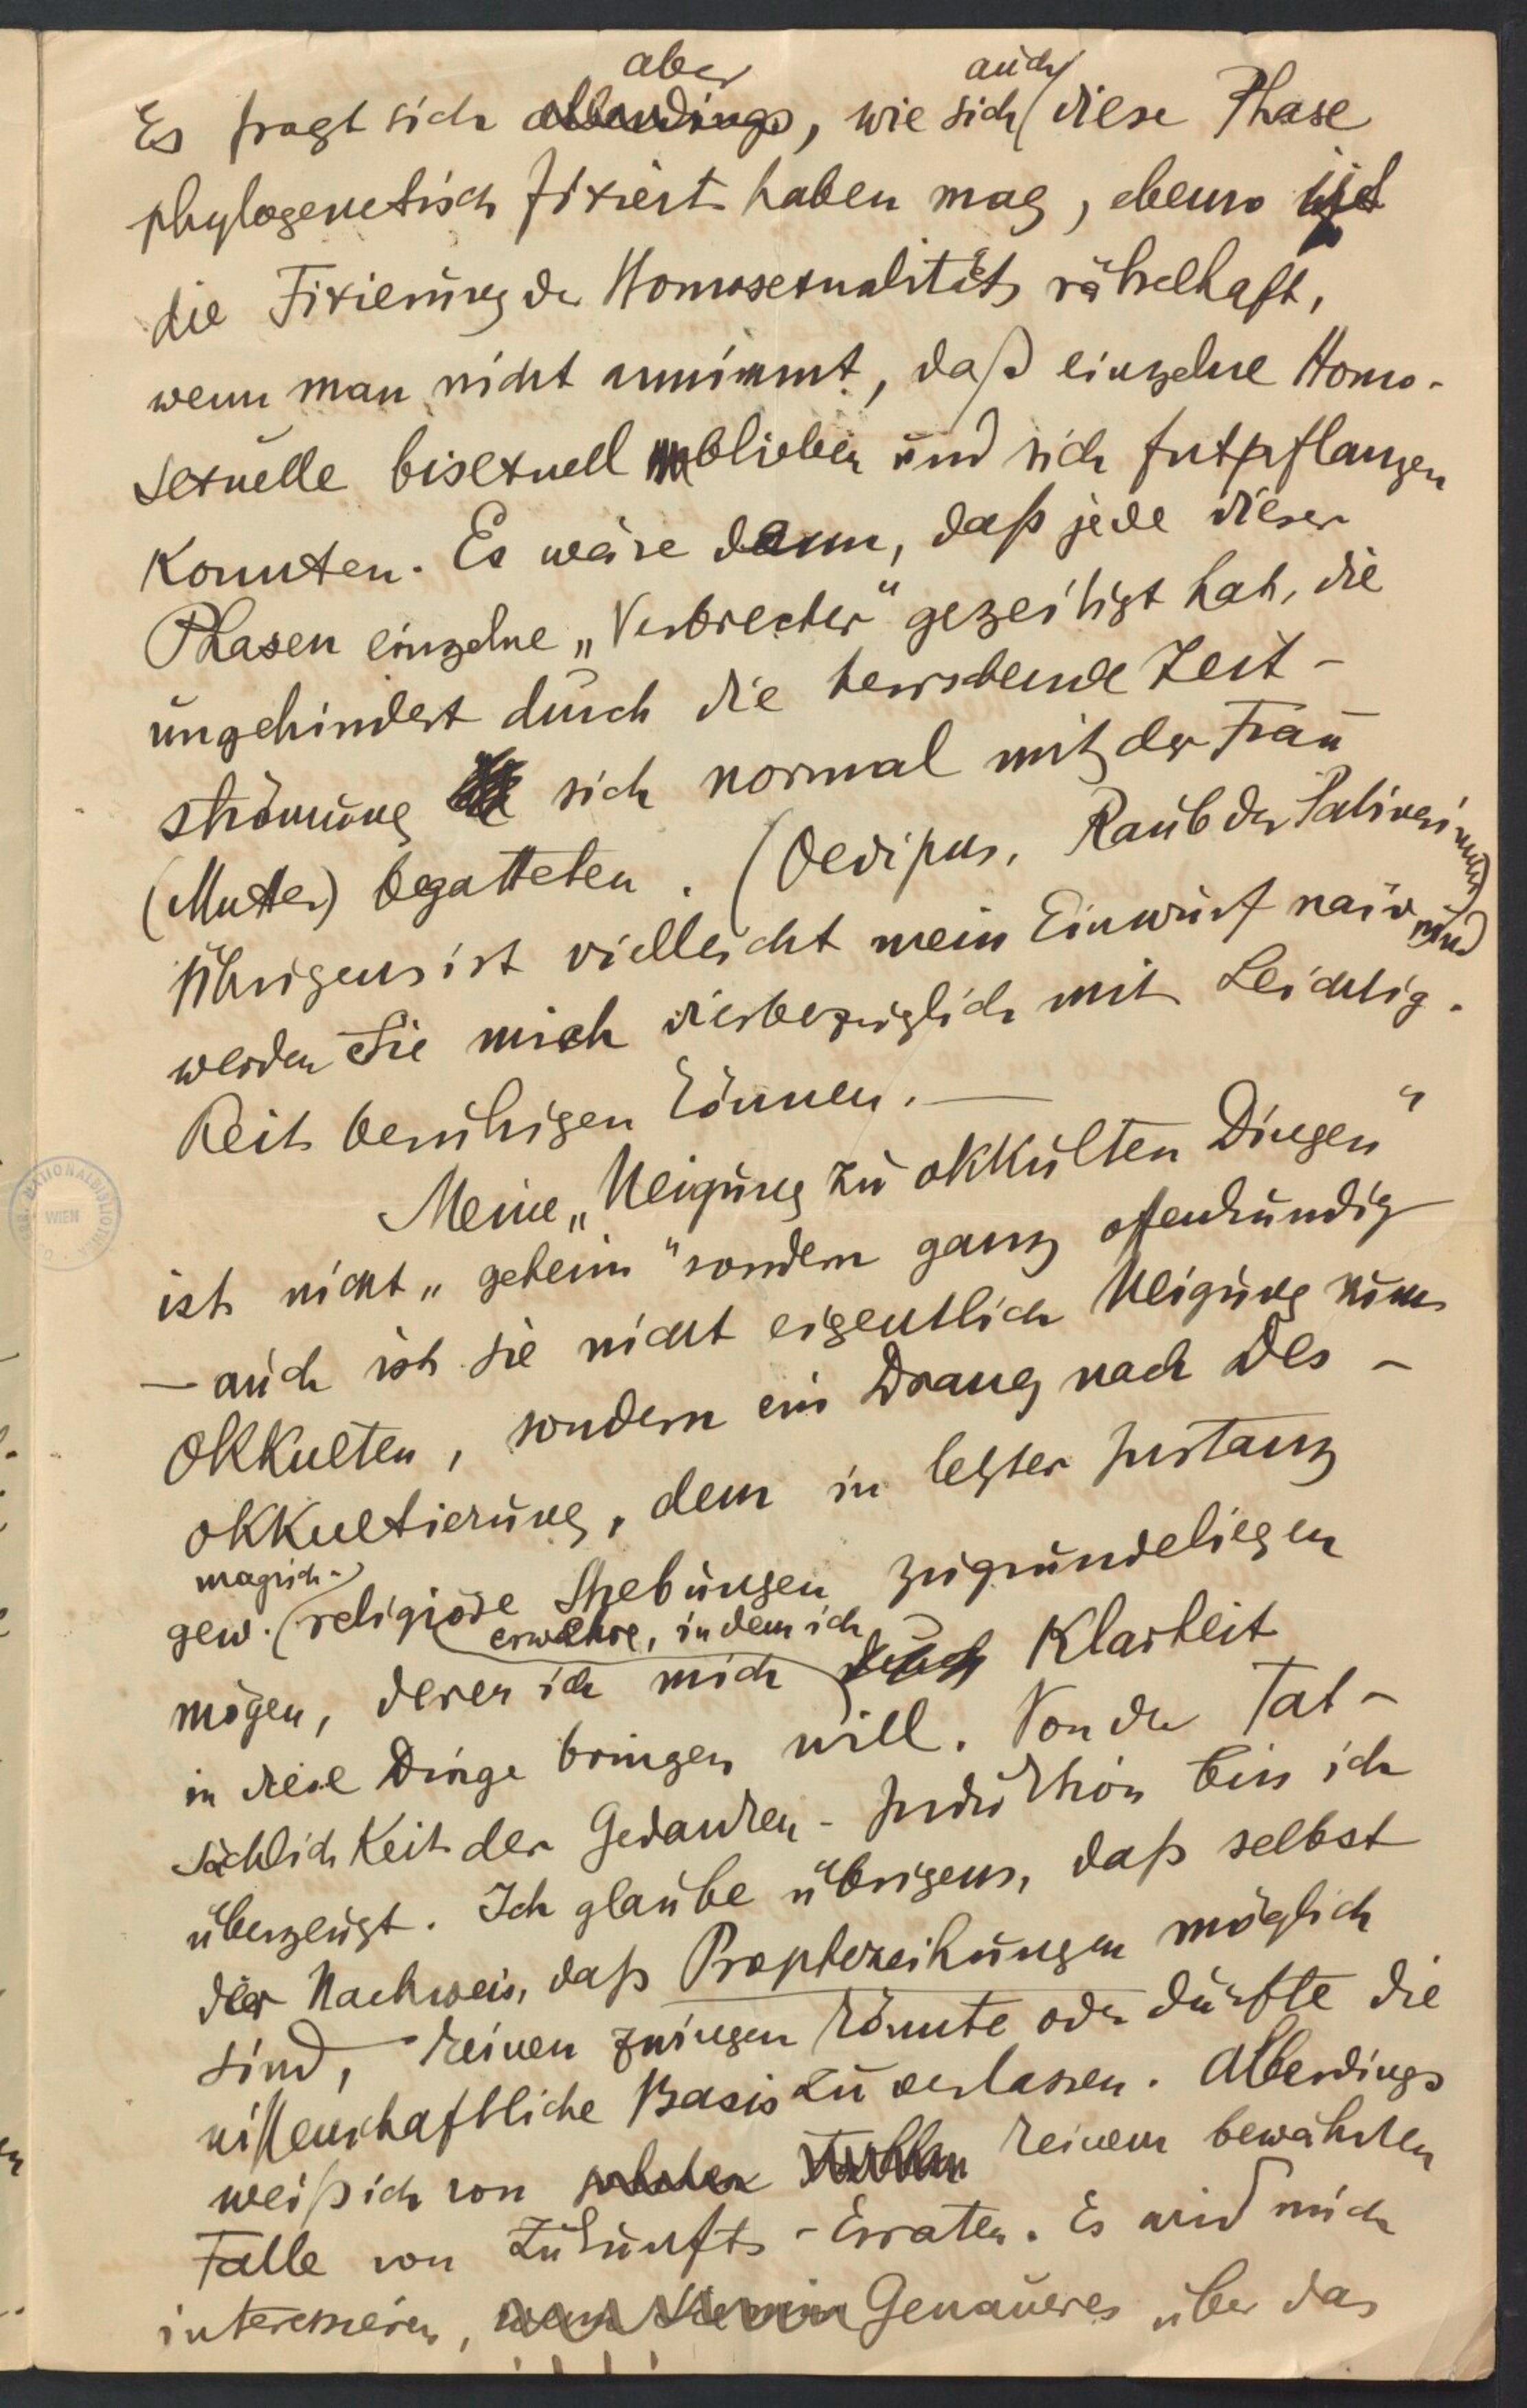 Es fragt sich allerdings aber, wie sich auch diese Phase
phylogenetisch fixiert haben mag, ebenso ist
die Fixierung der Homosexualität rätselhaft,
wenn man nicht annimmt, daß einzelne Homo-
sexuelle bisexuell blieben und sich fortpflanzen
konnten. Es wäre denn, daß jede dieser
Phasen einzelne „Verbrecher“ gezeitigt hat, die
ungehindert durch die herrschende Zeit-
strömung sich normal mit der Frau
(Mutter) begatteten. (Oedipus, Raub der Sabinerinnen)
Übrigens ist vielleicht mein Einwurf naiv und
werden Sie mich diesbezüglich mit Leichtig-
keit beruhigen können. —
Meine „Neigung zu okkulten Dingen“
ist nicht „geheim“ sondern ganz offenkundig
— auch ist sie nicht eigentlich Neigung zum
Okkulten, sondern ein Drang nach Des-
okkultierung, dem in letzter Instanz
gew. magisch-religiöse Strebungen zugrundeliegen
mögen, derer ich mich erwehre, indem ich durch Klarheit
in diese Dinge bringen will. Von der Tat-
sächlichkeit der Gedanken-Induktion bin ich
überzeugt. Ich glaube übrigens, daß selbst
der Nachweis, daß Prophezeihungen möglich
sind, keinen zwingen könnte oder dürfte die
wissenschaftliche Basis zu verlassen. Allerdings
weiß ich von solchen keinem bewährten
Falle von Zukunfts-Erraten. Es wird mich
interessieren, Genaueres über das
NATIONALBIBLIOTHEK
WIEN